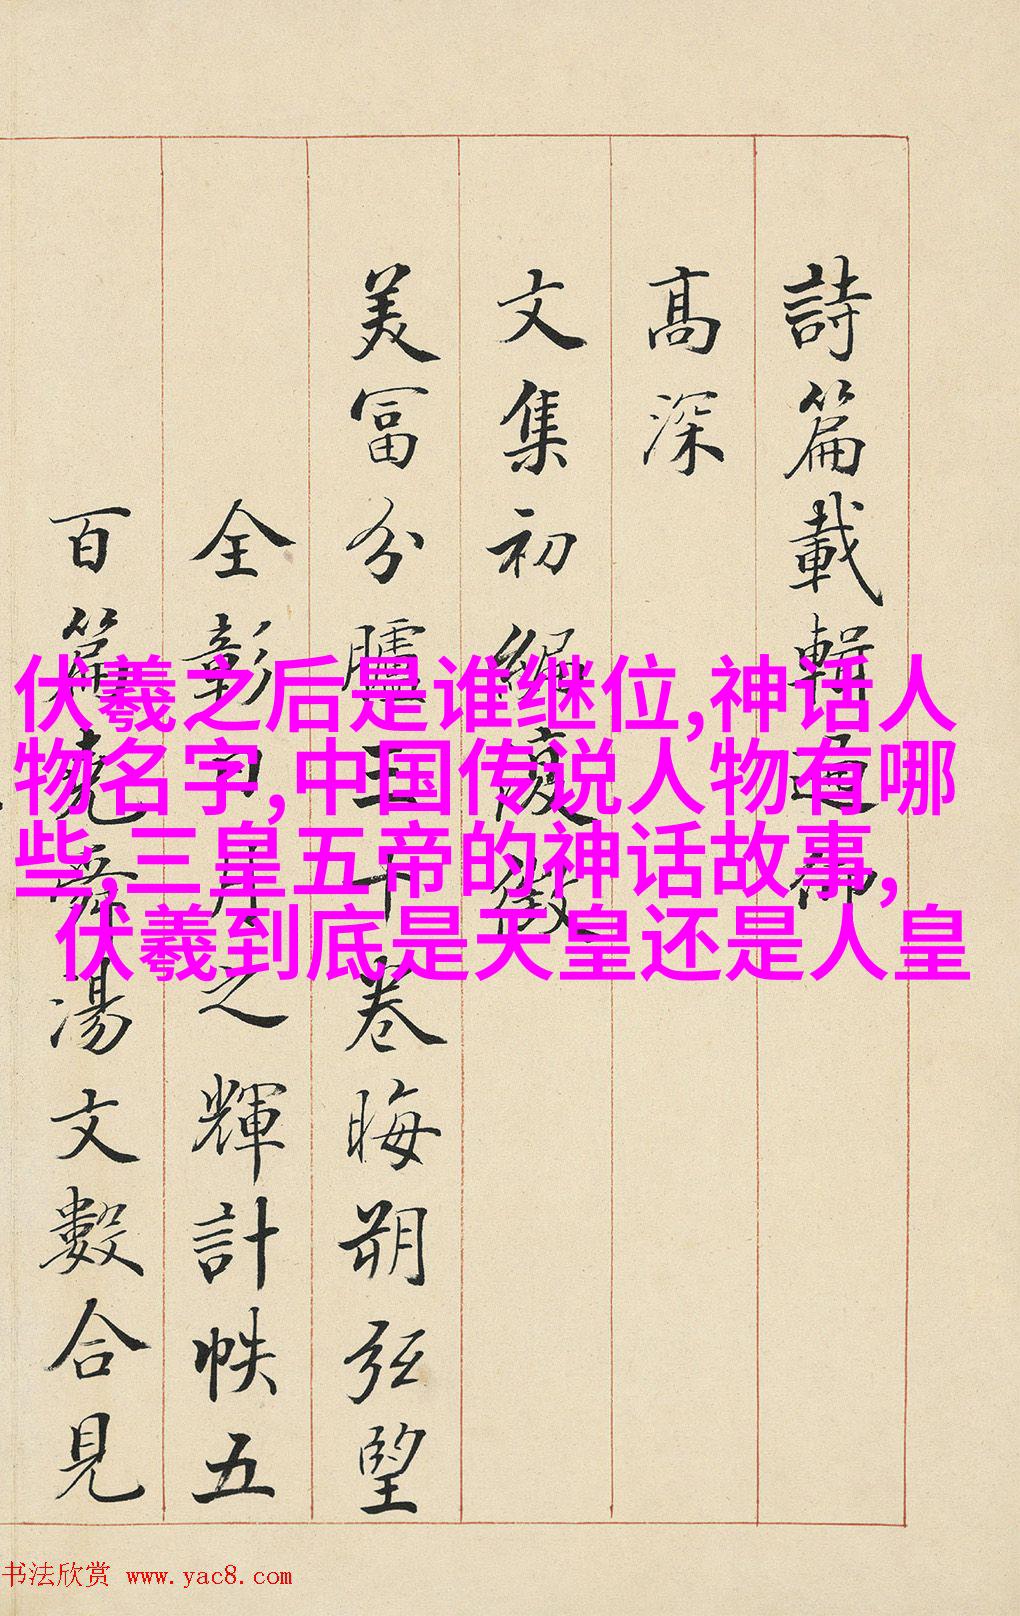 詩篇載輯通御
高深
文集初編復徵
美富分臚三十卷晦朔弦望
全彰日月之輝計帙五
百篇堯舜湯文數合見
伏羲之后是谁继位,神话人
物名字,中国传说人物有哪
些,三皇五帝的神话故事,
伏羲到底是天皇还是人皇
书法欣赏 www.yac8.com